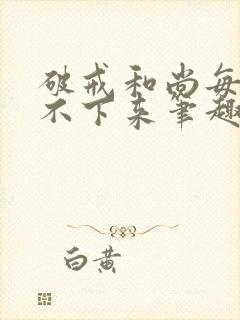 破戒和尚每
不下来笔趣
白黄